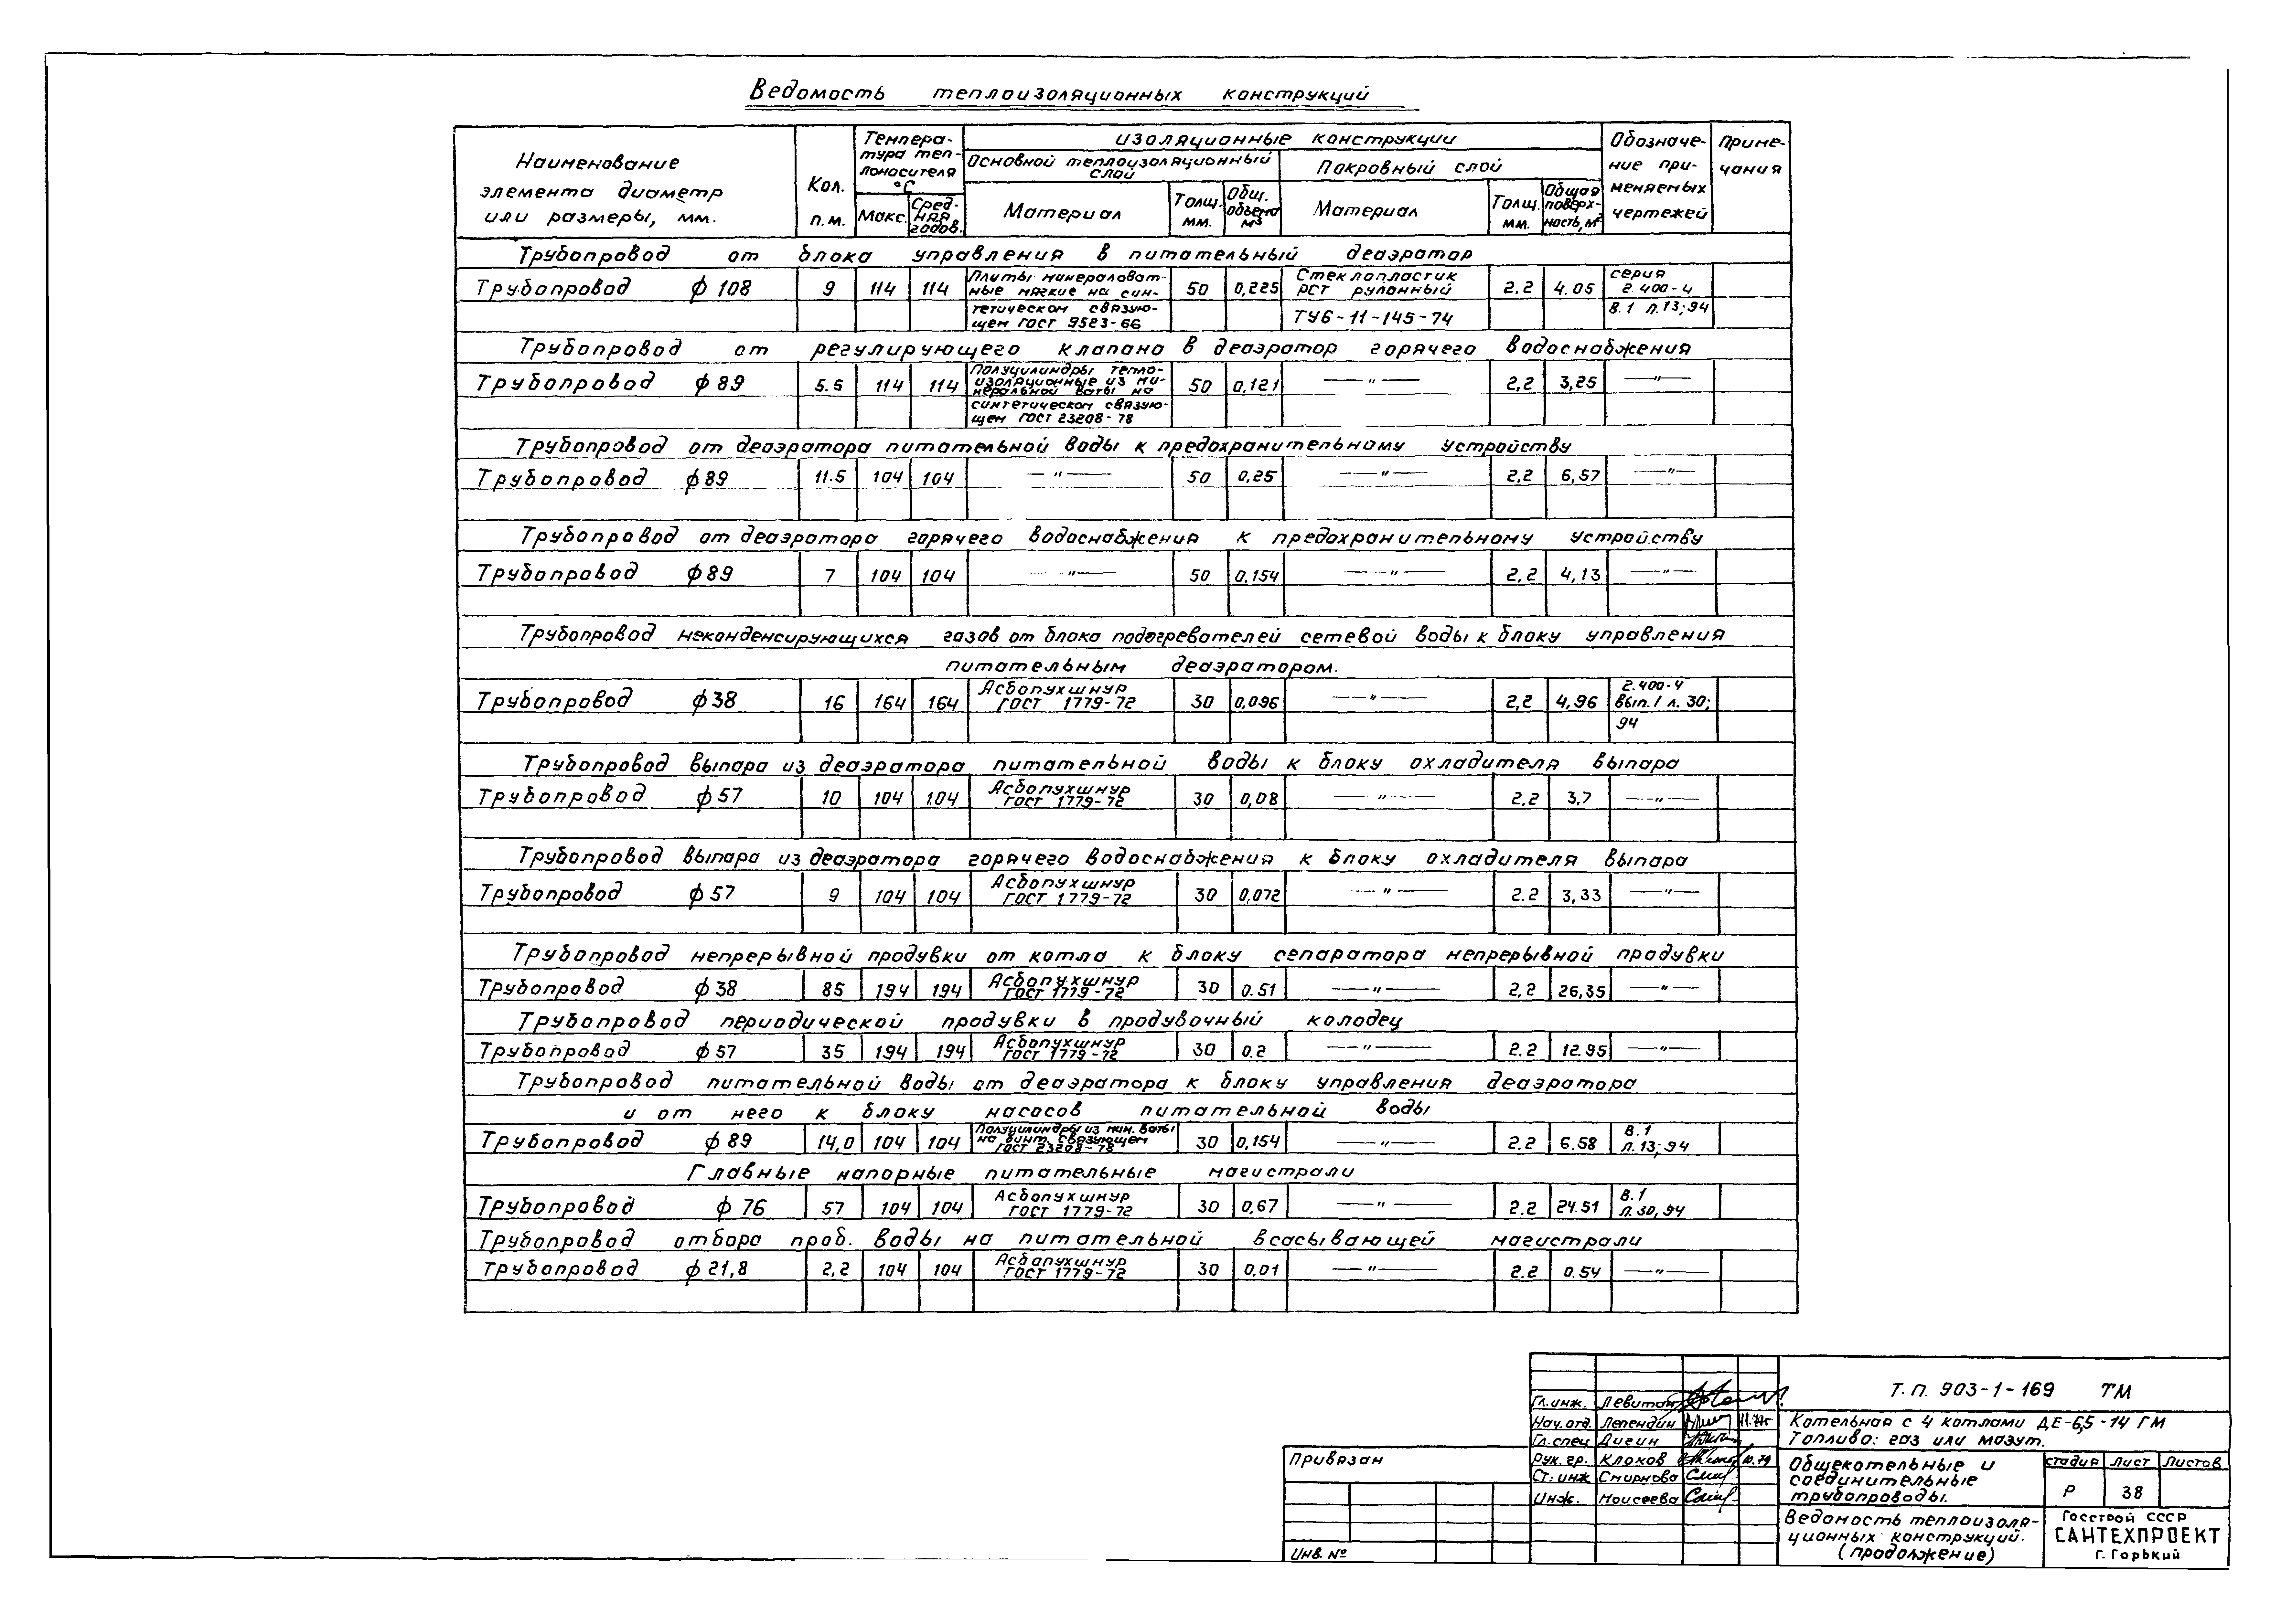 Ведомость теплоизоляционных конструкций
Наименование элемента диаметр или размеры, мм.
Кол. п.м.
Температура теплоносителя °С
Макс.
Средняя годов.
Изоляционные конструкции
Основной теплоизоляционный слой
Материал
Толщ. мм.
Общ. объем м³
Покровный слой
Материал
Толщ. мм.
Общая поверхность, м²
Обозначение применяемых чертежей
Примечания
Трубопровод от блока управления в питательный деаэратор
Трубопровод ф 108 9 114 114 Плиты минераловатные мягкие на синтетическом связующем ГОСТ 9523-66 50 0,225 Стеклопластик РСТ рулонный ТУ6-11-145-74 2.2 4.05 серия 2.400-4 В.1 л.13;94
Трубопровод от регулирующего клапана в деаэратор горячего водоснабжения
Трубопровод ф 89 5.5 114 114 Полуцилиндры теплоизоляционные из минеральной ваты на синтетическом связующем ГОСТ 23208-78 50 0,121 —"— 2,2 3,25 —"—
Трубопровод от деаэратора питательной воды к предохранительному устройству
Трубопровод ф 89 11.5 104 104 —"— 50 0,25 —"— 2,2 6,57 —"—
Трубопровод от деаэратора горячего водоснабжения к предохранительному устройству
Трубопровод ф 89 7 104 104 —"— 50 0,154 —"— 2,2 4,13 —"—
Трубопровод неконденсирующихся газов от блока подогревателей сетевой воды к блоку управления
питательным деаэратором.
Трубопровод ф 38 16 164 164 Асбопухшнур ГОСТ 1779-72 30 0,096 —"— 2,2 4,96 2.400-4 вып.1 л.30; 94
Трубопровод выпара из деаэратора питательной воды к блоку охладителя выпара
Трубопровод ф 57 10 104 104 Асбопухшнур ГОСТ 1779-72 30 0,08 —"— 2.2 3,7 —"—
Трубопровод выпара из деаэратора горячего водоснабжения к блоку охладителя выпара
Трубопровод ф 57 9 104 104 Асбопухшнур ГОСТ 1779-72 30 0,072 —"— 2.2 3,33 —"—
Трубопровод непрерывной продувки от котла к блоку сепаратора непрерывной продувки
Трубопровод ф 38 85 194 194 Асбопухшнур ГОСТ 1779-72 30 0.51 —"— 2,2 26,35 —"—
Трубопровод периодической продувки в продувочный колодец
Трубопровод ф 57 35 194 194 Асбопухшнур ГОСТ 1779-72 30 0.2 —"— 2.2 12.95 —"—
Трубопровод питательной воды от деаэратора к блоку управления деаэратора
и от него к блоку насосов питательной воды
Трубопровод ф 89 14,0 104 104 Полуцилиндры из мин. ваты на синт. связующем ГОСТ 23208-78 30 0,154 —"— 2.2 6.58 В.1 л.13;94
Главные напорные питательные магистрали
Трубопровод ф 76 57 104 104 Асбопухшнур ГОСТ 1779-72 30 0,67 —"— 2.2 24.51 В.1 л.30,94
Трубопровод отбора проб. воды на питательной всасывающей магистрали
Трубопровод ф 21,8 2,2 104 104 Асбопухшнур ГОСТ 1779-72 30 0,01 —"— 2.2 0.54 —"—
Т.П. 903-1-169 ТМ
Гл.инж. Левитан
Нач.отд. Лепендин
Гл.спец Дигин
Рук.гр. Клоков 10.79
Ст.инж Смирнова
Инж. Моисеева
Котельная с 4 котлами ДЕ-6,5-14 ГМ
Топливо: газ или мазут.
Общекотельные и
соединительные
трубопроводы.
стадия лист листов
Р 38
Ведомость теплоизоля-
ционных конструкций.
(продолжение)
Госстрой СССР
САНТЕХПРОЕКТ
г. Горький
Привязан
Инв. №